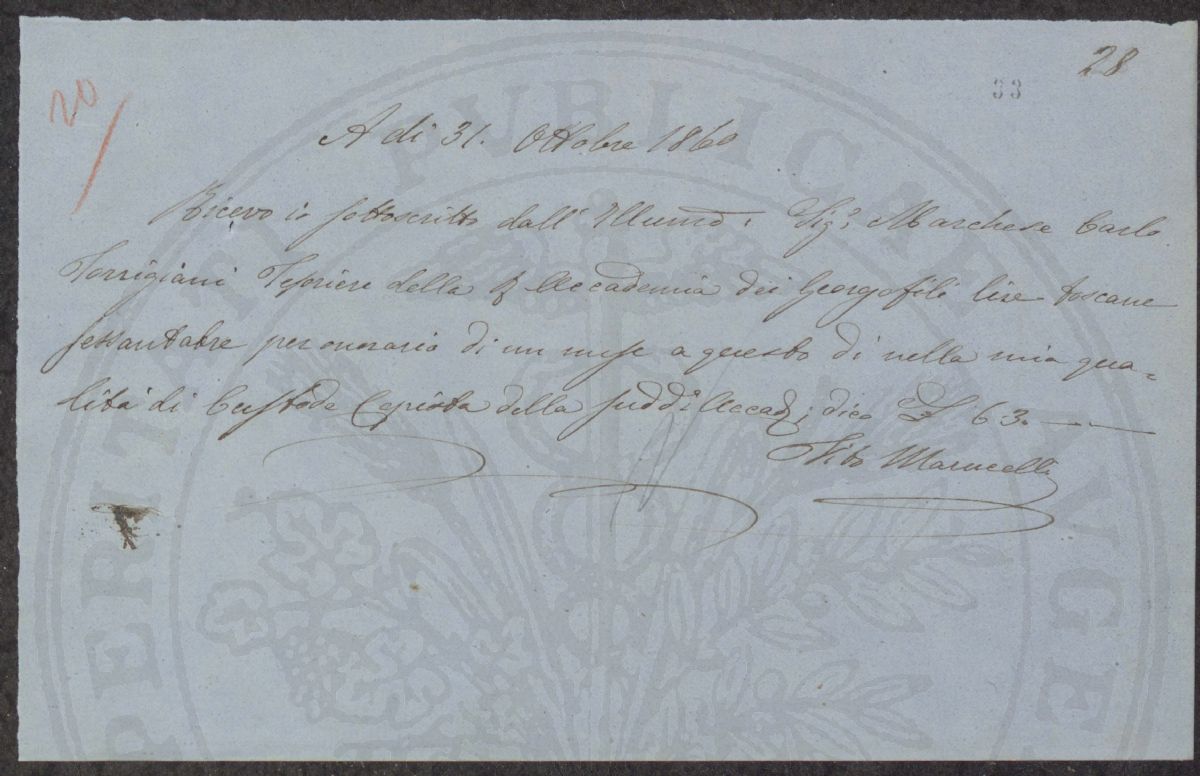 28
33
20
A di 31. Ottobre 1860
Ricevo io sottoscritto dall' Illumo: Sigr Marchese Carlo
Torrigiani Tesoriere della R Accademia dei Georgofili lire toscane
sessantatre per onorario di un mese a questo dì nella mia qua=
lità di Custode Copista della sudda Accad; dico £ 63. —
Vito Marucelli
PROSPERITATI PUBLICAE AUGE